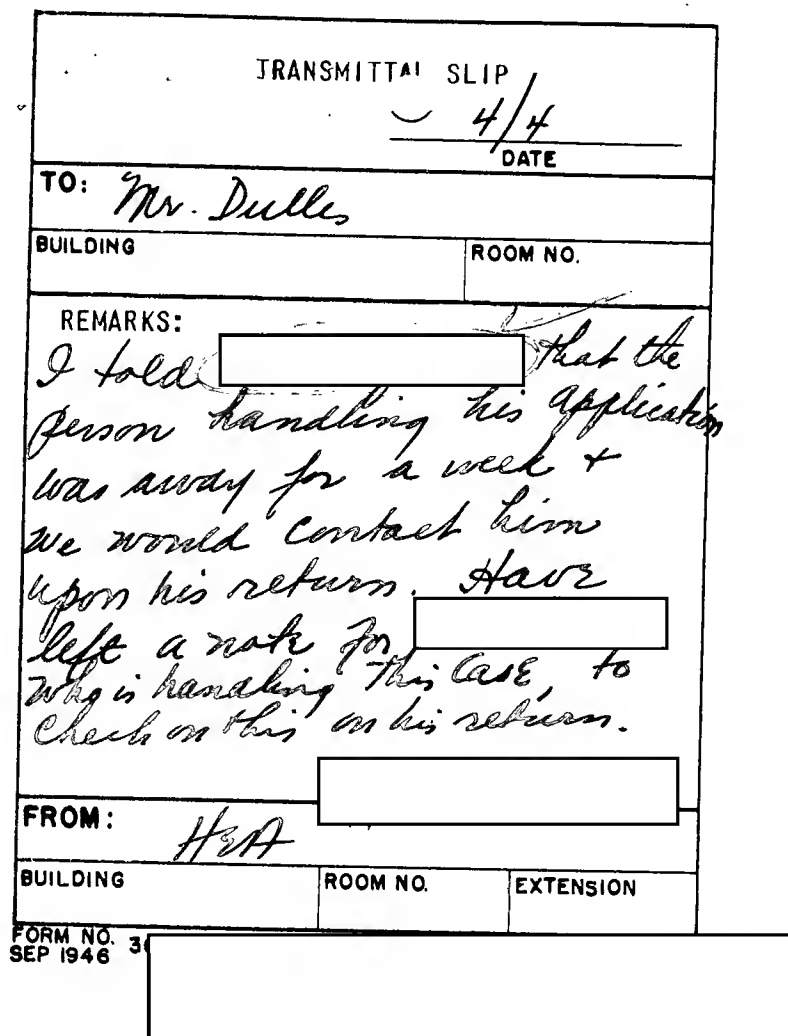 TRANSMITTAL SLIP
4/4
DATE
TO: Mr. Dulles
BUILDING ROOM NO.
REMARKS:
I told that the
person handling his application
was away for a week +
we would contact him
upon his return. Have
left a note for
who is handling this case, to
check on this on his return.
FROM: HEA
BUILDING ROOM NO. EXTENSION
FORM NO. 3
SEP 1946